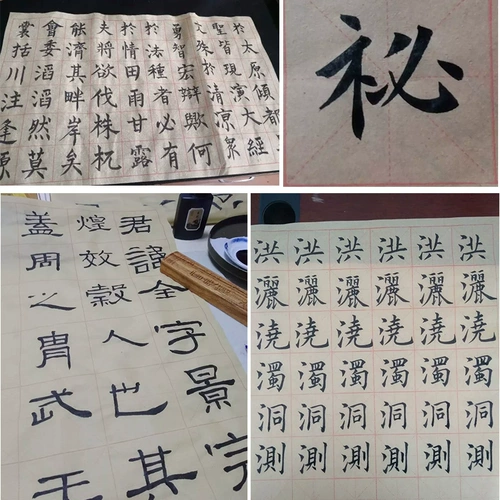 於太原傾都
聖皆現演大經
文殊於清涼眾
勇智宏辯歟何
於法種者必有
於情田雨甘露
夫將欲伐株杌
能濟其畔岸矣
會委滔滔然莫
囊括川注逢源
祕
君諱全字景完
煌效穀人也其
蓋周之胄武王
洪洪洪洪洪洪
灑灑灑灑灑灑
澆澆澆澆澆澆
濁濁濁濁濁濁
洞洞洞洞洞洞
測測測測測測